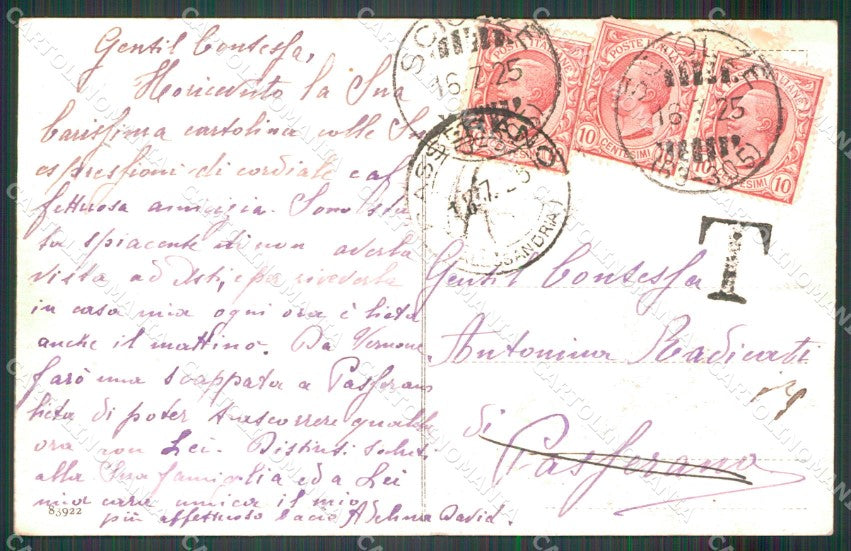 Gentil Contessa,
Ho ricevuto la Sua
carissima cartolina colle Sue
espressioni di cordiale e af
fettuosa amicizia. Sono sta
ta spiacente di non averla
vista ad Asti, e per riverderla
in casa mia ogni ora è lieta
anche il mattino. Da Vernone
farò una scappata a Passerano
lieta di poter trascorrere qualche
ora con Lei. Distinti saluti
alla Sua famiglia ed a Lei
mia cara amica il mio
più affettuoso bacio Adelina David.
83922
SCIOLZE
16.7.25
POSTE ITALIANE
10 CENTESIMI 10
SCIOLZE
16.7.25
(59-395)
PASSERANO
(ALESSANDRIA)
T
Gentil Contessa
Antonina Radicati
di
Passerano